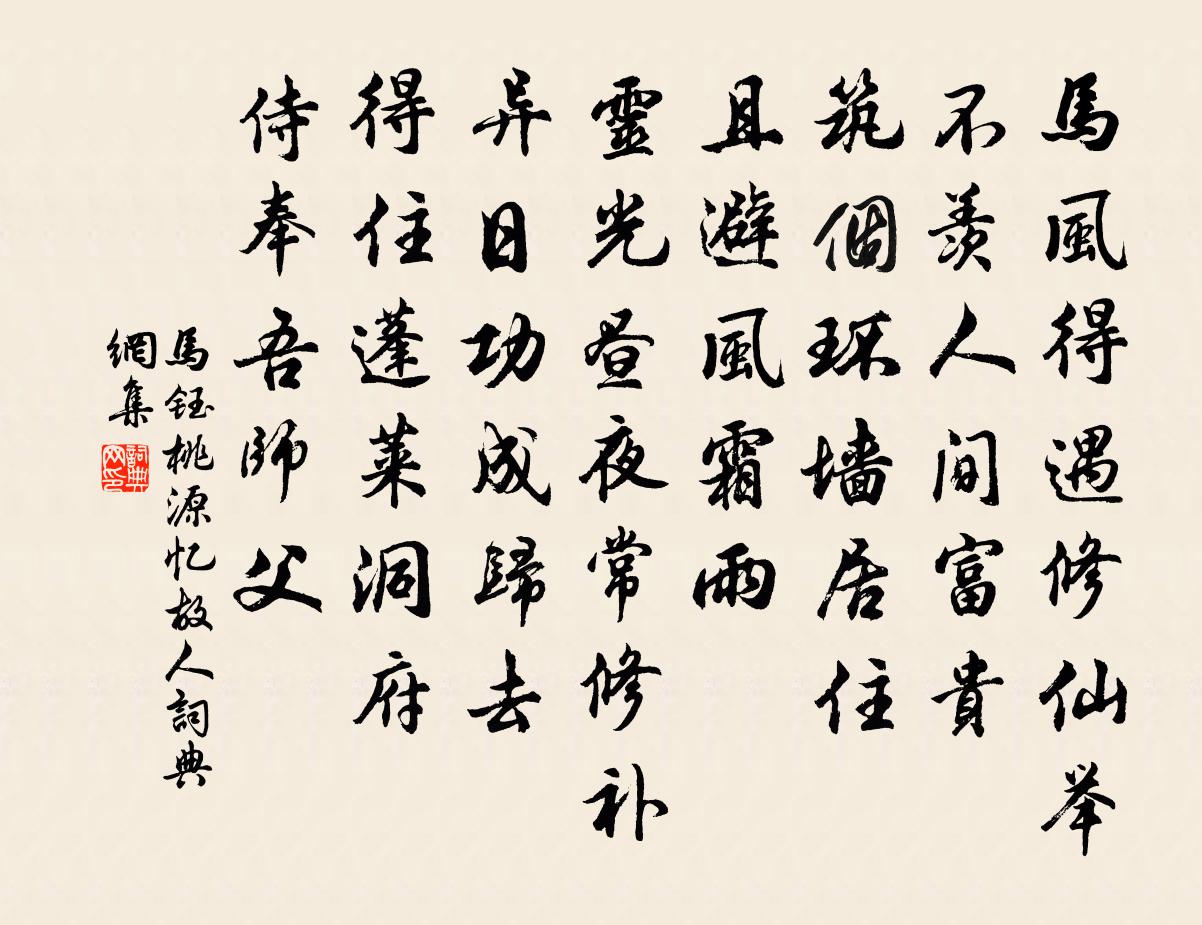 馬風得遇修仙举
不羨人间富貴
筑個环墙居住
且避風霜雨
靈光昼夜常修补
异日功成歸去
得住蓬莱洞府
侍奉吾师父
馬鈺桃源忆故人詞典
網集
詞典
网印